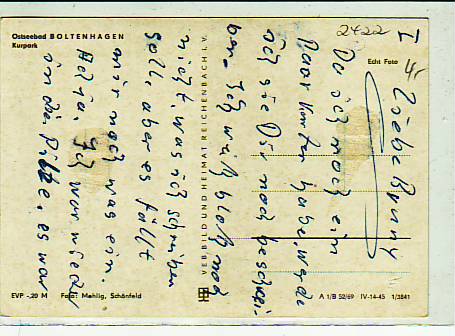 Ostseebad BOLTENHAGEN
Kurpark
2422
I
Echt Foto
4,-
Liebe
Da ich noch ein
paar Karten habe, werde
ich sie Dir noch beschrei-
ben. Ich weiß bloß noch
nicht, was ich schreiben
soll, aber es fällt
mir noch was ein.
Ich war wieder
in der es war
VEB BILD UND HEIMAT REICHENBACH I. V.
EVP -,20 M Foto: Mehlig, Schönfeld
A 1/B 52/69 IV-14-45 1/3841